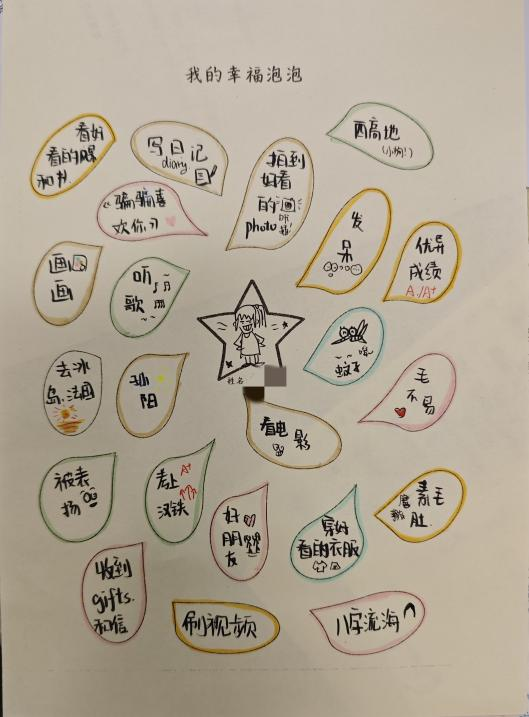 我的幸福泡泡
看好
看的剧
和书
写日记
diary
拍到
好看
的
photo
咔嚓!
西高地
(小狗!)
《骗骗喜
欢你》
发
呆
优异
成绩
A/A+
画
画
听
歌
去冰
岛、法国
孙
阳
蚊子
嗡
毛
不易
姓名
看电影
被表
扬
考上
汉铁
A+
好
朋
友
穿好
看的衣服
素毛
肚
收到
gifts.
和信
刷视频
八字流海